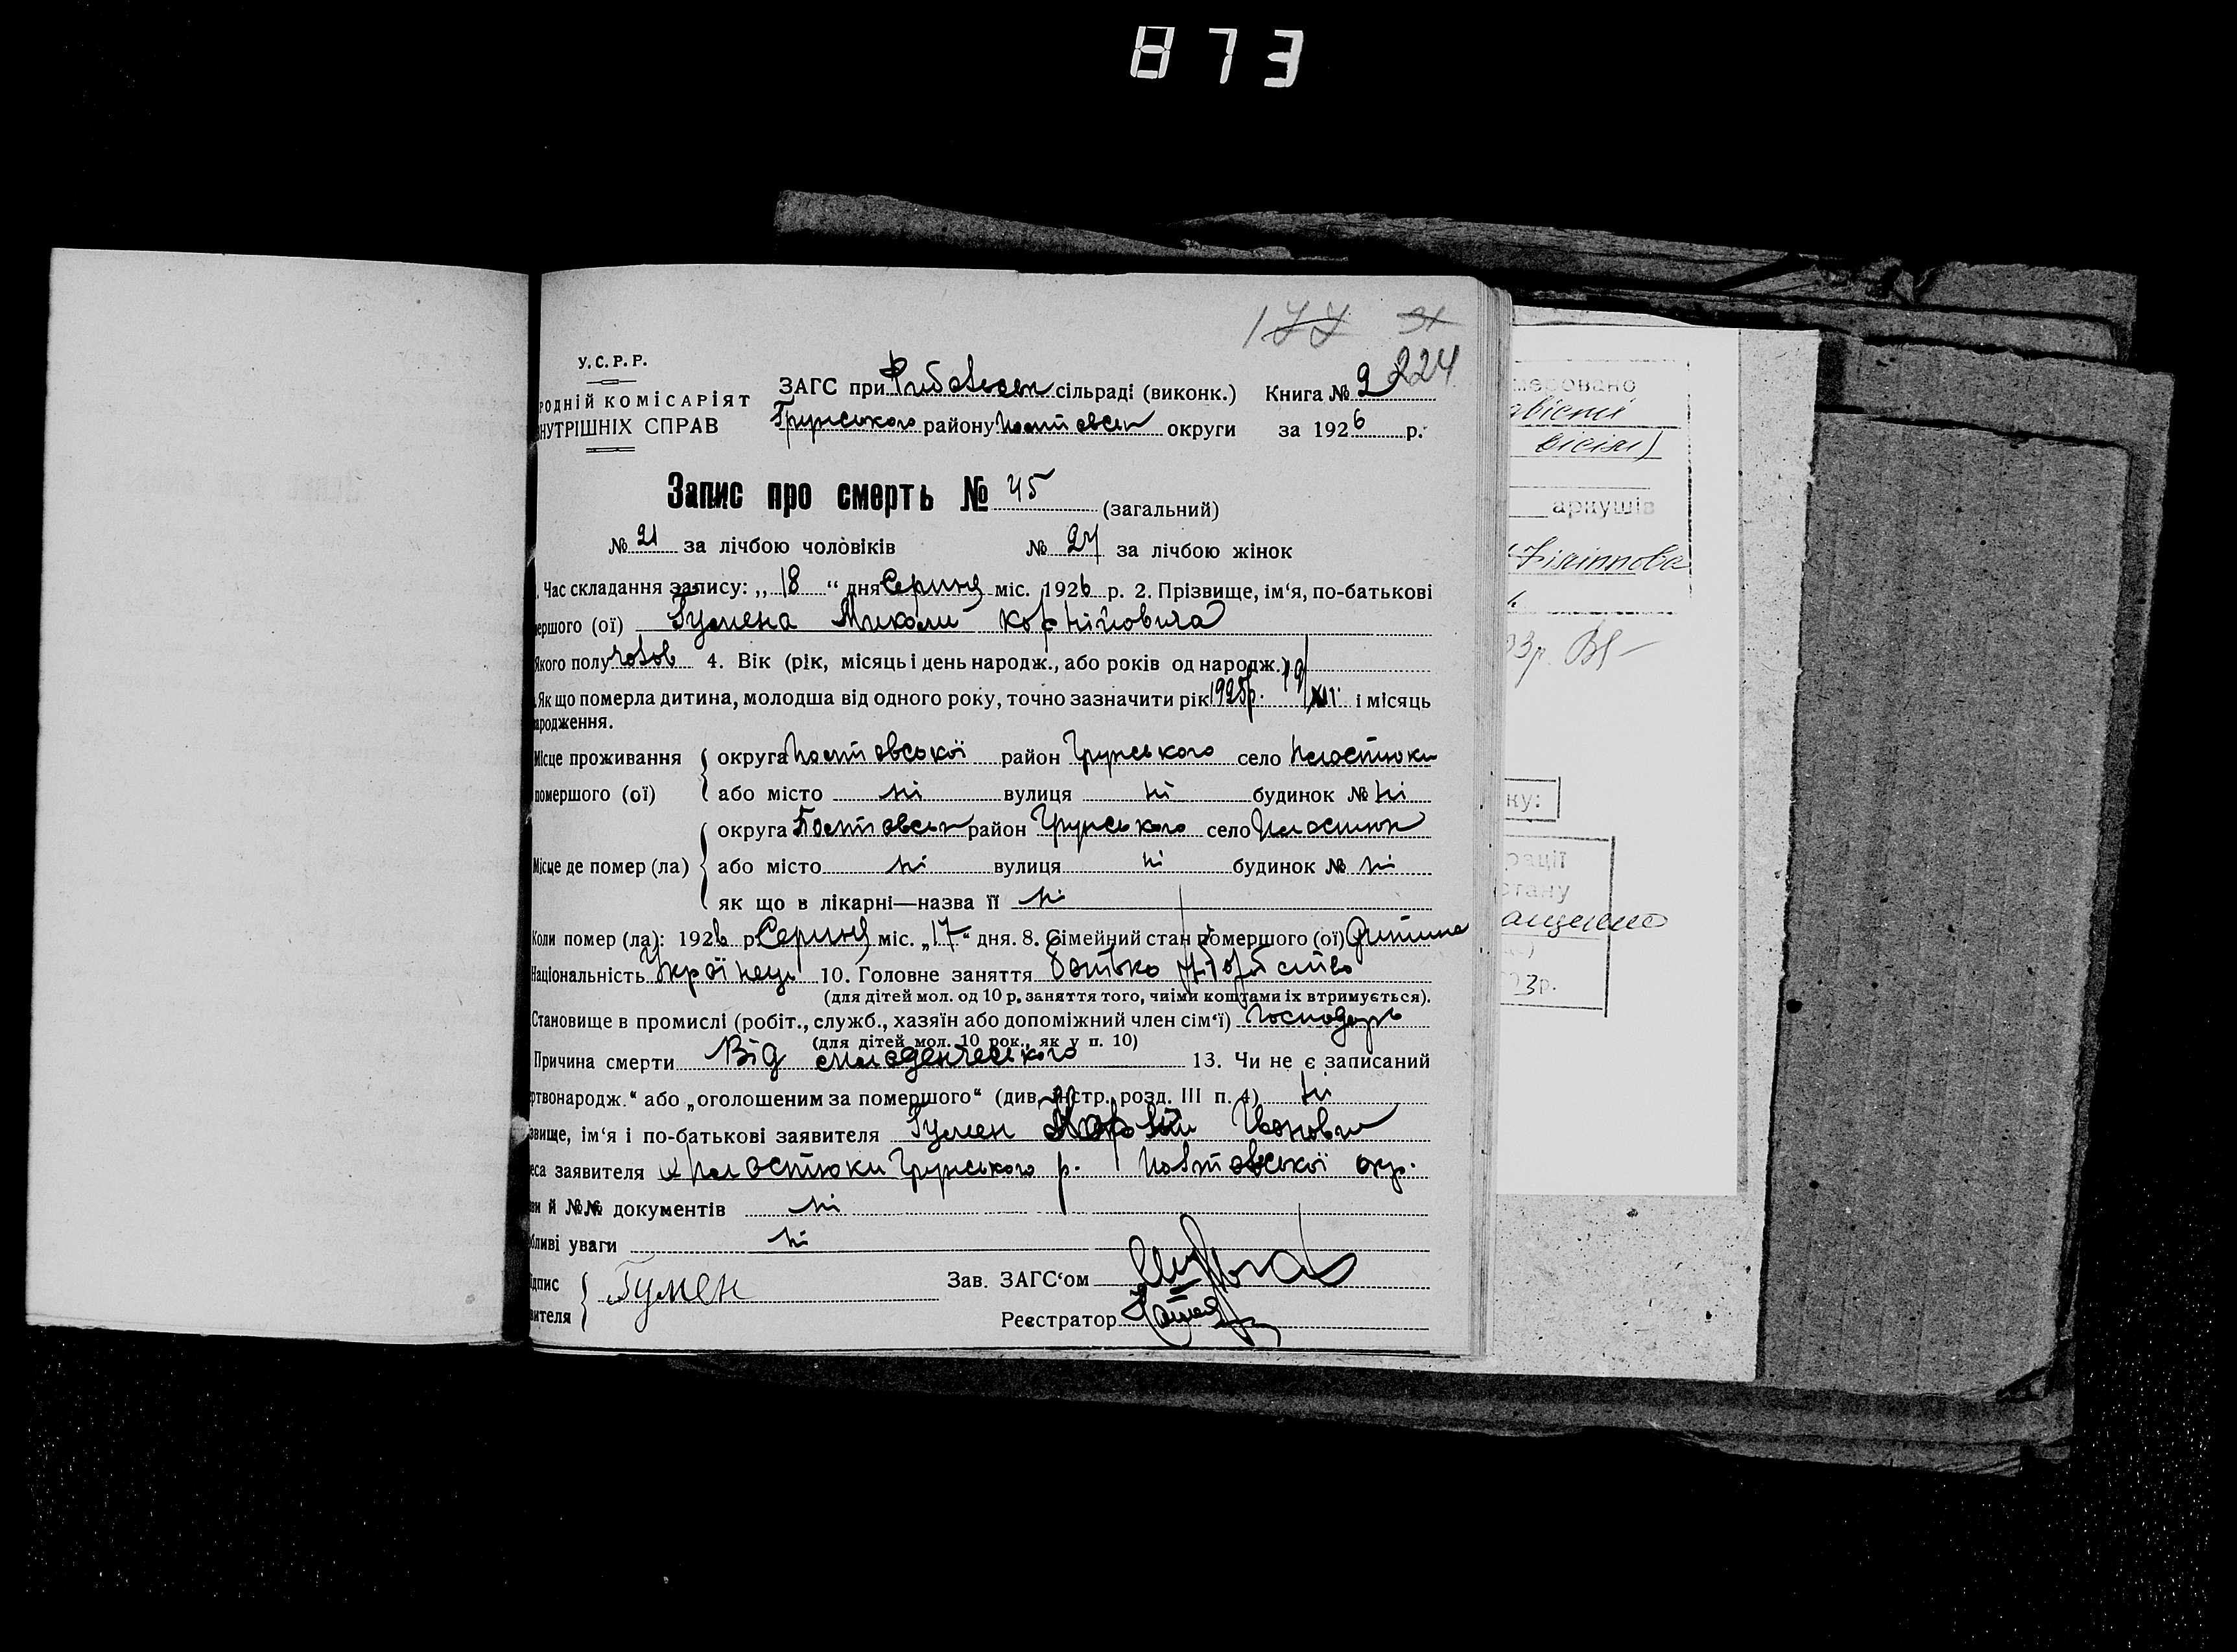 873
177 31
224
У.С.Р.Р.
РОДНІЙ КОМІСАРІЯТ
НУТРІШНІХ СПРАВ
ЗАГС при сільраді (виконк.) Книга № 2
Грунського району Полтавськ округи за 1926 р.
Запис про смерть № 45 (загальний)
№ 21 за лічбою чоловіків № 24 за лічбою жінок
Час складання запису: „ 18 “ дня Серпня міс. 1926 р. 2. Прізвище, ім‘я, по-батькові
ершого (ої) Гумена Миколи Корнійовича
Якого полу чолов 4. Вік (рік, місяць і день народж., або років од народж.) 19
Як що померла дитина, молодша від одного року, точно зазначити рік 1925р. XII і місяць
ародження.
Місце проживання округа Полтавської район Грунського село
помершого (ої) або місто ні вулиця ні будинок № ні
округа Полтавськ район Грунського село
Місце де помер (ла) або місто ні вулиця ні будинок № ні
як що в лікарні—назва її ні
Коли помер (ла): 1926 р. Серпня міс. „17“ дня. 8. Сімейний стан помершого (ої) Дитина
Національність Українець 10. Головне заняття батько
(для дітей мол. од 10 р. заняття того, чиїми коштами їх втримується).
Становище в промислі (робіт., служб., хазяїн або допоміжний член сім‘ї) господарь
(для дітей мол. 10 рок., як у п. 10)
Причина смерти Від младенческого 13. Чи не є записаний
ртвонародж.“ або „оголошеним за помершого“ (див. інстр. розд. III п. 4) ні
звище, ім‘я і по-батькові заявителя Гумен Корній Іванович
еса заявителя Грунського р. Полтавської окр.
зви й №№ документів ні
бливі уваги ні
ідпис Гумен Зав. ЗАГС‘ом
вителя Реєстратор
меровано
вісімі
аркушів
Філіппова
03р.
ку:
рації
стану
03р.